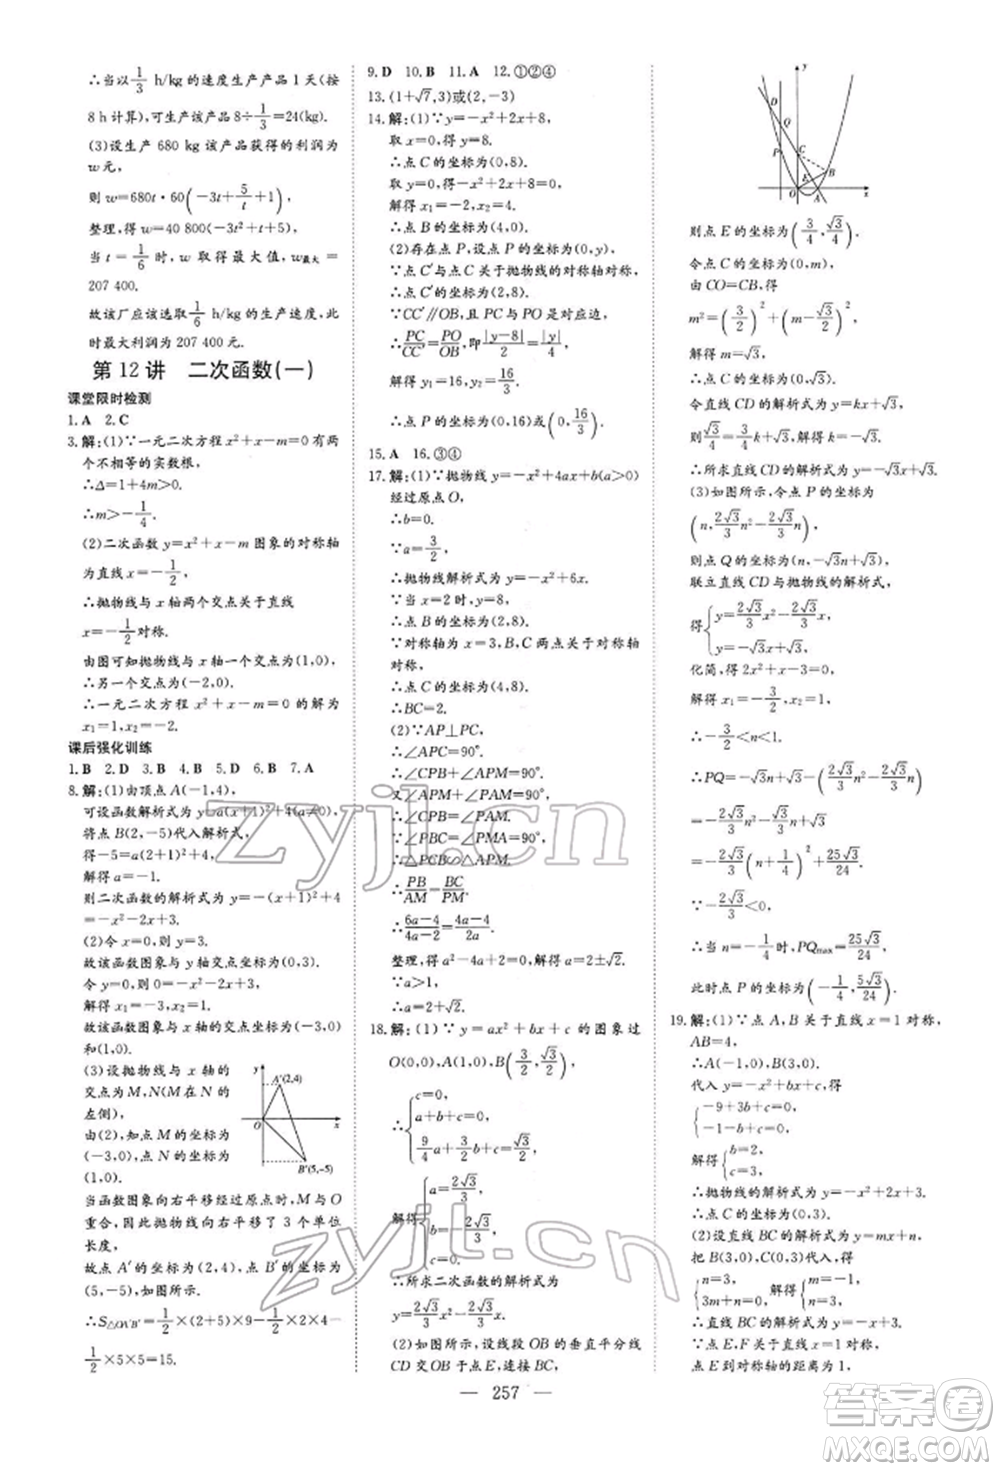 ∴当以1/3 h/kg的速度生产产品1天(按
8 h计算),可生产该产品8÷1/3=24(kg).
(3)设生产680 kg该产品获得的利润为
w元,
则w=680t·60(-3t+5/t+1),
整理,得w=40 800(-3t²+t+5),
当t=1/6时,w取得最大值,w最大=
207 400.
故该厂应该选取1/6 h/kg的生产速度,此
时最大利润为207 400元.
第12讲 二次函数(一)
课堂限时检测
1.A 2.C
3.解:(1)∵一元二次方程x²+x-m=0有两
个不相等的实数根,
∴Δ=1+4m>0.
∴m>-1/4.
(2)二次函数y=x²+x-m图象的对称轴
为直线x=-1/2,
∴抛物线与x轴两个交点关于直线
x=-1/2对称.
由图可知抛物线与x轴一个交点为(1,0),
∴另一个交点为(-2,0).
∴一元二次方程x²+x-m=0的解为
x₁=1,x₂=-2.
课后强化训练
1.B 2.D 3.B 4.B 5.D 6.B 7.A
8.解:(1)由顶点A(-1,4),
可设函数解析式为y=a(x+1)²+4(a≠0),
将点B(2,-5)代入解析式,
得-5=a(2+1)²+4,
解得a=-1.
则二次函数的解析式为y=-(x+1)²+4
=-x²-2x+3.
(2)令x=0,则y=3.
故该函数图象与y轴交点坐标为(0,3).
令y=0,则0=-x²-2x+3.
解得x₁=-3,x₂=1.
故该函数图象与x轴的交点坐标为(-3,0)
和(1,0).
(3)设抛物线与x轴的
交点为M,N(M在N的
左侧),
由(2),知点M的坐标为
(-3,0),点N的坐标为
(1,0).
y
A'(2,4)
O
x
B'(5,-5)
当函数图象向右平移经过原点时,M与O
重合,因此抛物线向右平移了3个单位
长度,
故点A'的坐标为(2,4),点B'的坐标为
(5,-5),如图所示.
∴S△OA'B'=1/2×(2+5)×9-1/2×2×4-
1/2×5×5=15.
9.D 10.B 11.A 12.①②④
13.(1+√7,3)或(2,-3)
14.解:(1)∵y=-x²+2x+8,
取x=0,得y=8,
∴点C的坐标为(0,8).
取y=0,得-x²+2x+8=0,
解得x₁=-2,x₂=4.
∴点B的坐标为(4,0).
(2)存在点P,设点P的坐标为(0,y),
∵点C'与点C关于抛物线的对称轴对称,
∴点C'的坐标为(2,8).
∵CC'∥OB,且PC与PO为对应边,
∴PC/PO=CC'/OB,即|y-8|/|y|=2/4.
解得y₁=16,y₂=16/3.
∴点P的坐标为(0,16)或(0,16/3).
15.A 16.③④
17.解:(1)∵抛物线y=-x²+4ax+b(a>0)
经过原点O,
∴b=0.
∵a=3/2,
∴抛物线解析式为y=-x²+6x.
∵当x=2时,y=8,
∴点B的坐标为(2,8).
∵对称轴为x=3,B,C两点关于对称轴
对称,
∴点C的坐标为(4,8).
∴BC=2.
(2)∵AP⊥PC,
∴∠APC=90°.
∴∠CPB+∠APM=90°.
又∠APM+∠PAM=90°,
∴∠CPB=∠PAM.
∵∠PBC=∠PMA=90°,
∴△PCB∽△APM.
∴PB/AM=BC/PM.
∴(6a-4)/(4a-2)=(4a-4)/2a.
整理,得a²-4a+2=0,
∵a>1,
∴a=2+√2.
18.解:(1)∵y=ax²+bx+c的图象过
O(0,0),A(1,0),B(3/2,√3/2),
∴{c=0,
a+b+c=0,
9/4a+3/2b+c=√3/2,
解得{a=2√3/3,
b=-2√3/3,
c=0.
∴所求二次函数的解析式为
y=2√3/3x²-2√3/3x.
(2)如图所示,设线段OB的垂直平分线
CD交OB于点E,连接BC,
y
D
Q
P
C
B
E
O
A
x
则点E的坐标为(3/4,√3/4).
令点C的坐标为(0,m),
由CO=CB,得
m²=(3/2)²+(m-√3/2)²,
解得m=√3.
∴点C的坐标为(0,√3).
令直线CD的解析式为y=kx+√3,
则√3/4=3/4k+√3,解得k=-√3.
∴所求直线CD的解析式为y=-√3x+√3.
(3)如图所示,令点P的坐标为
(n,2√3/3n²-2√3/3n),
则点Q的坐标为(n,-√3n+√3),
联立直线CD与抛物线的解析式,
得{y=2√3/3x²-2√3/3x,
y=-√3x+√3,
化简,得2x²+x-3=0,
解得x₁=-3/2,x₂=1.
∴-3/2<n<1.
∴PQ=-√3n+√3-(2√3/3n²-2√3/3n)
=-2√3/3n²-√3/3n+√3
=-2√3/3(n+1/4)²+25√3/24.
∵-2√3/3<0,
∴当n=-1/4时,PQmax=25√3/24,
此时点P的坐标为(-1/4,5√3/24).
19.解:(1)∵点A,B关于直线x=1对称,
AB=4,
∴A(-1,0),B(3,0).
代入y=-x²+bx+c,得
{-9+3b+c=0,
-1-b+c=0,
解得{b=2,
c=3,
∴抛物线的解析式为y=-x²+2x+3.
∴点C的坐标为(0,3).
(2)设直线BC的解析式为y=mx+n,
把B(3,0),C(0,3)代入,得
{n=3,
3m+n=0,解得{m=-1,
n=3,
∴直线BC的解析式为y=-x+3.
∵点E,F关于直线x=1对称,
点E到对称轴的距离为1,
— 257 —
zyjl.cn
zyjl.cn
答案卷
MXQE.COM